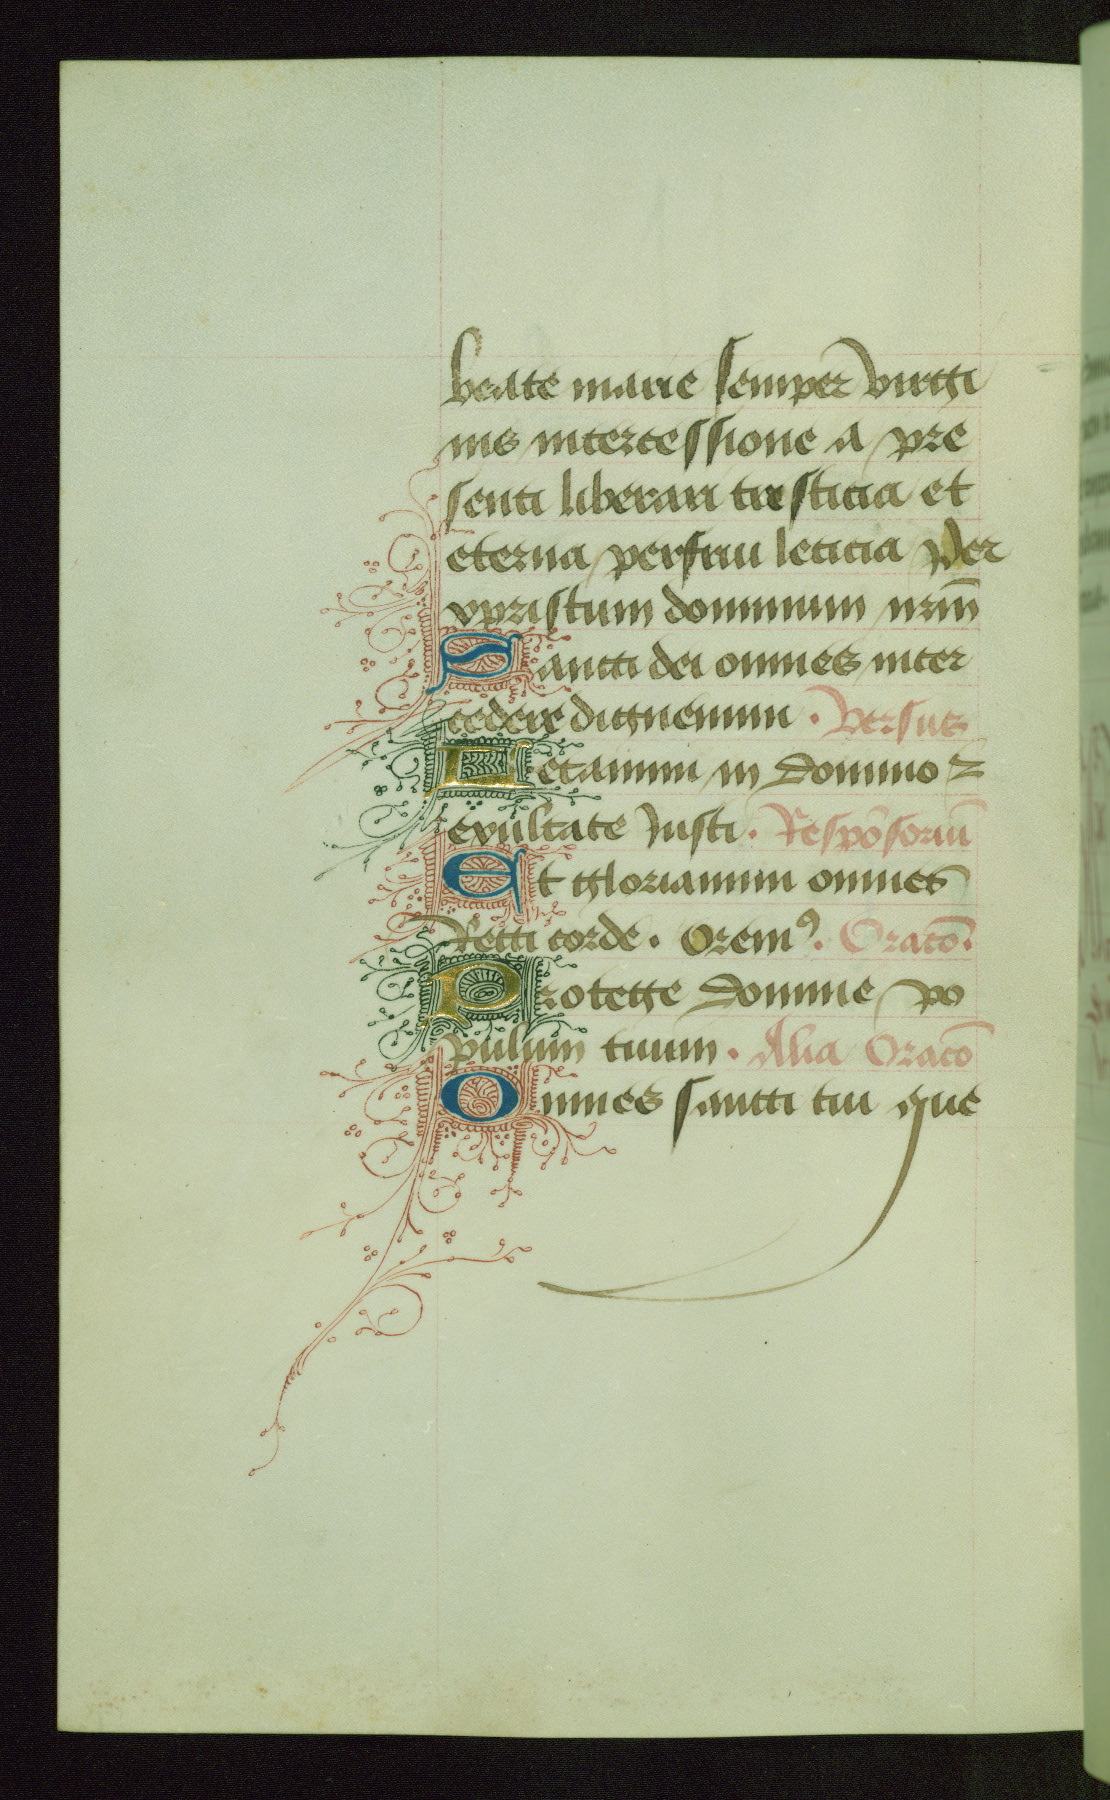 beate marie semper virgi
nis intercessione a pre
senti liberari tristicia et
eterna perfrui leticia Per
xpristum dominum nrm̄
Sancti dei omnes inter
cedere dignemini · Versus
Letamini in Domino ⁊
exultate Justi · Respōsoriū
Et gloriamini omnes
Recti corde · Oremꝰ · Oracō ·
Protege Domine po
pulum tuum · Alia Oracō
Omnes sancti tui que